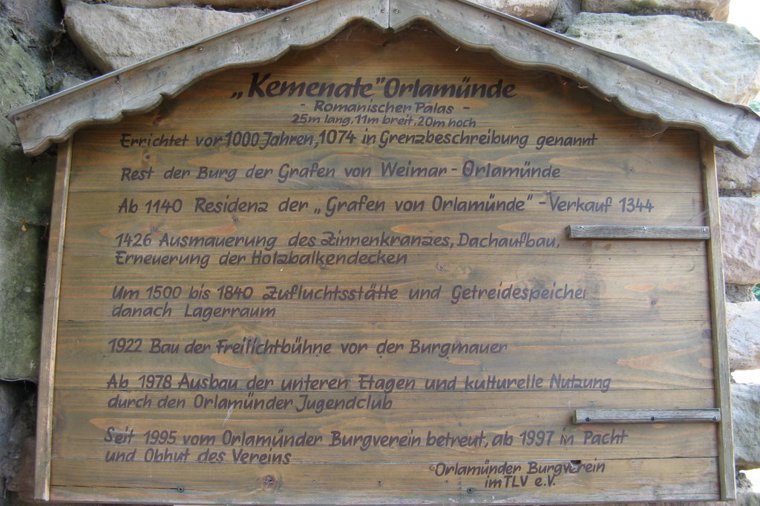 „Kemenate" Orlamünde
- Romanischer Palas -
25m lang, 11m breit, 20m hoch
Errichtet vor 1000 Jahren, 1074 in Grenzbeschreibung genannt
Rest der Burg der Grafen von Weimar - Orlamünde
Ab 1140 Residenz der „Grafen von Orlamünde" - Verkauf 1344
1426 Ausmauerung des Zinnenkranzes, Dachaufbau,
Erneuerung der Holzbalkendecken
Um 1500 bis 1840 Zufluchtsstätte und Getreidespeicher
danach Lagerraum
1922 Bau der Freilichtbühne vor der Burgmauer
Ab 1978 Ausbau der unteren Etagen und kulturelle Nutzung
durch den Orlamünder Jugendclub
Seit 1995 vom Orlamünder Burgverein betreut, ab 1997 in Pacht
und Obhut des Vereins
Orlamünder Burgverein
im TLV e.V.